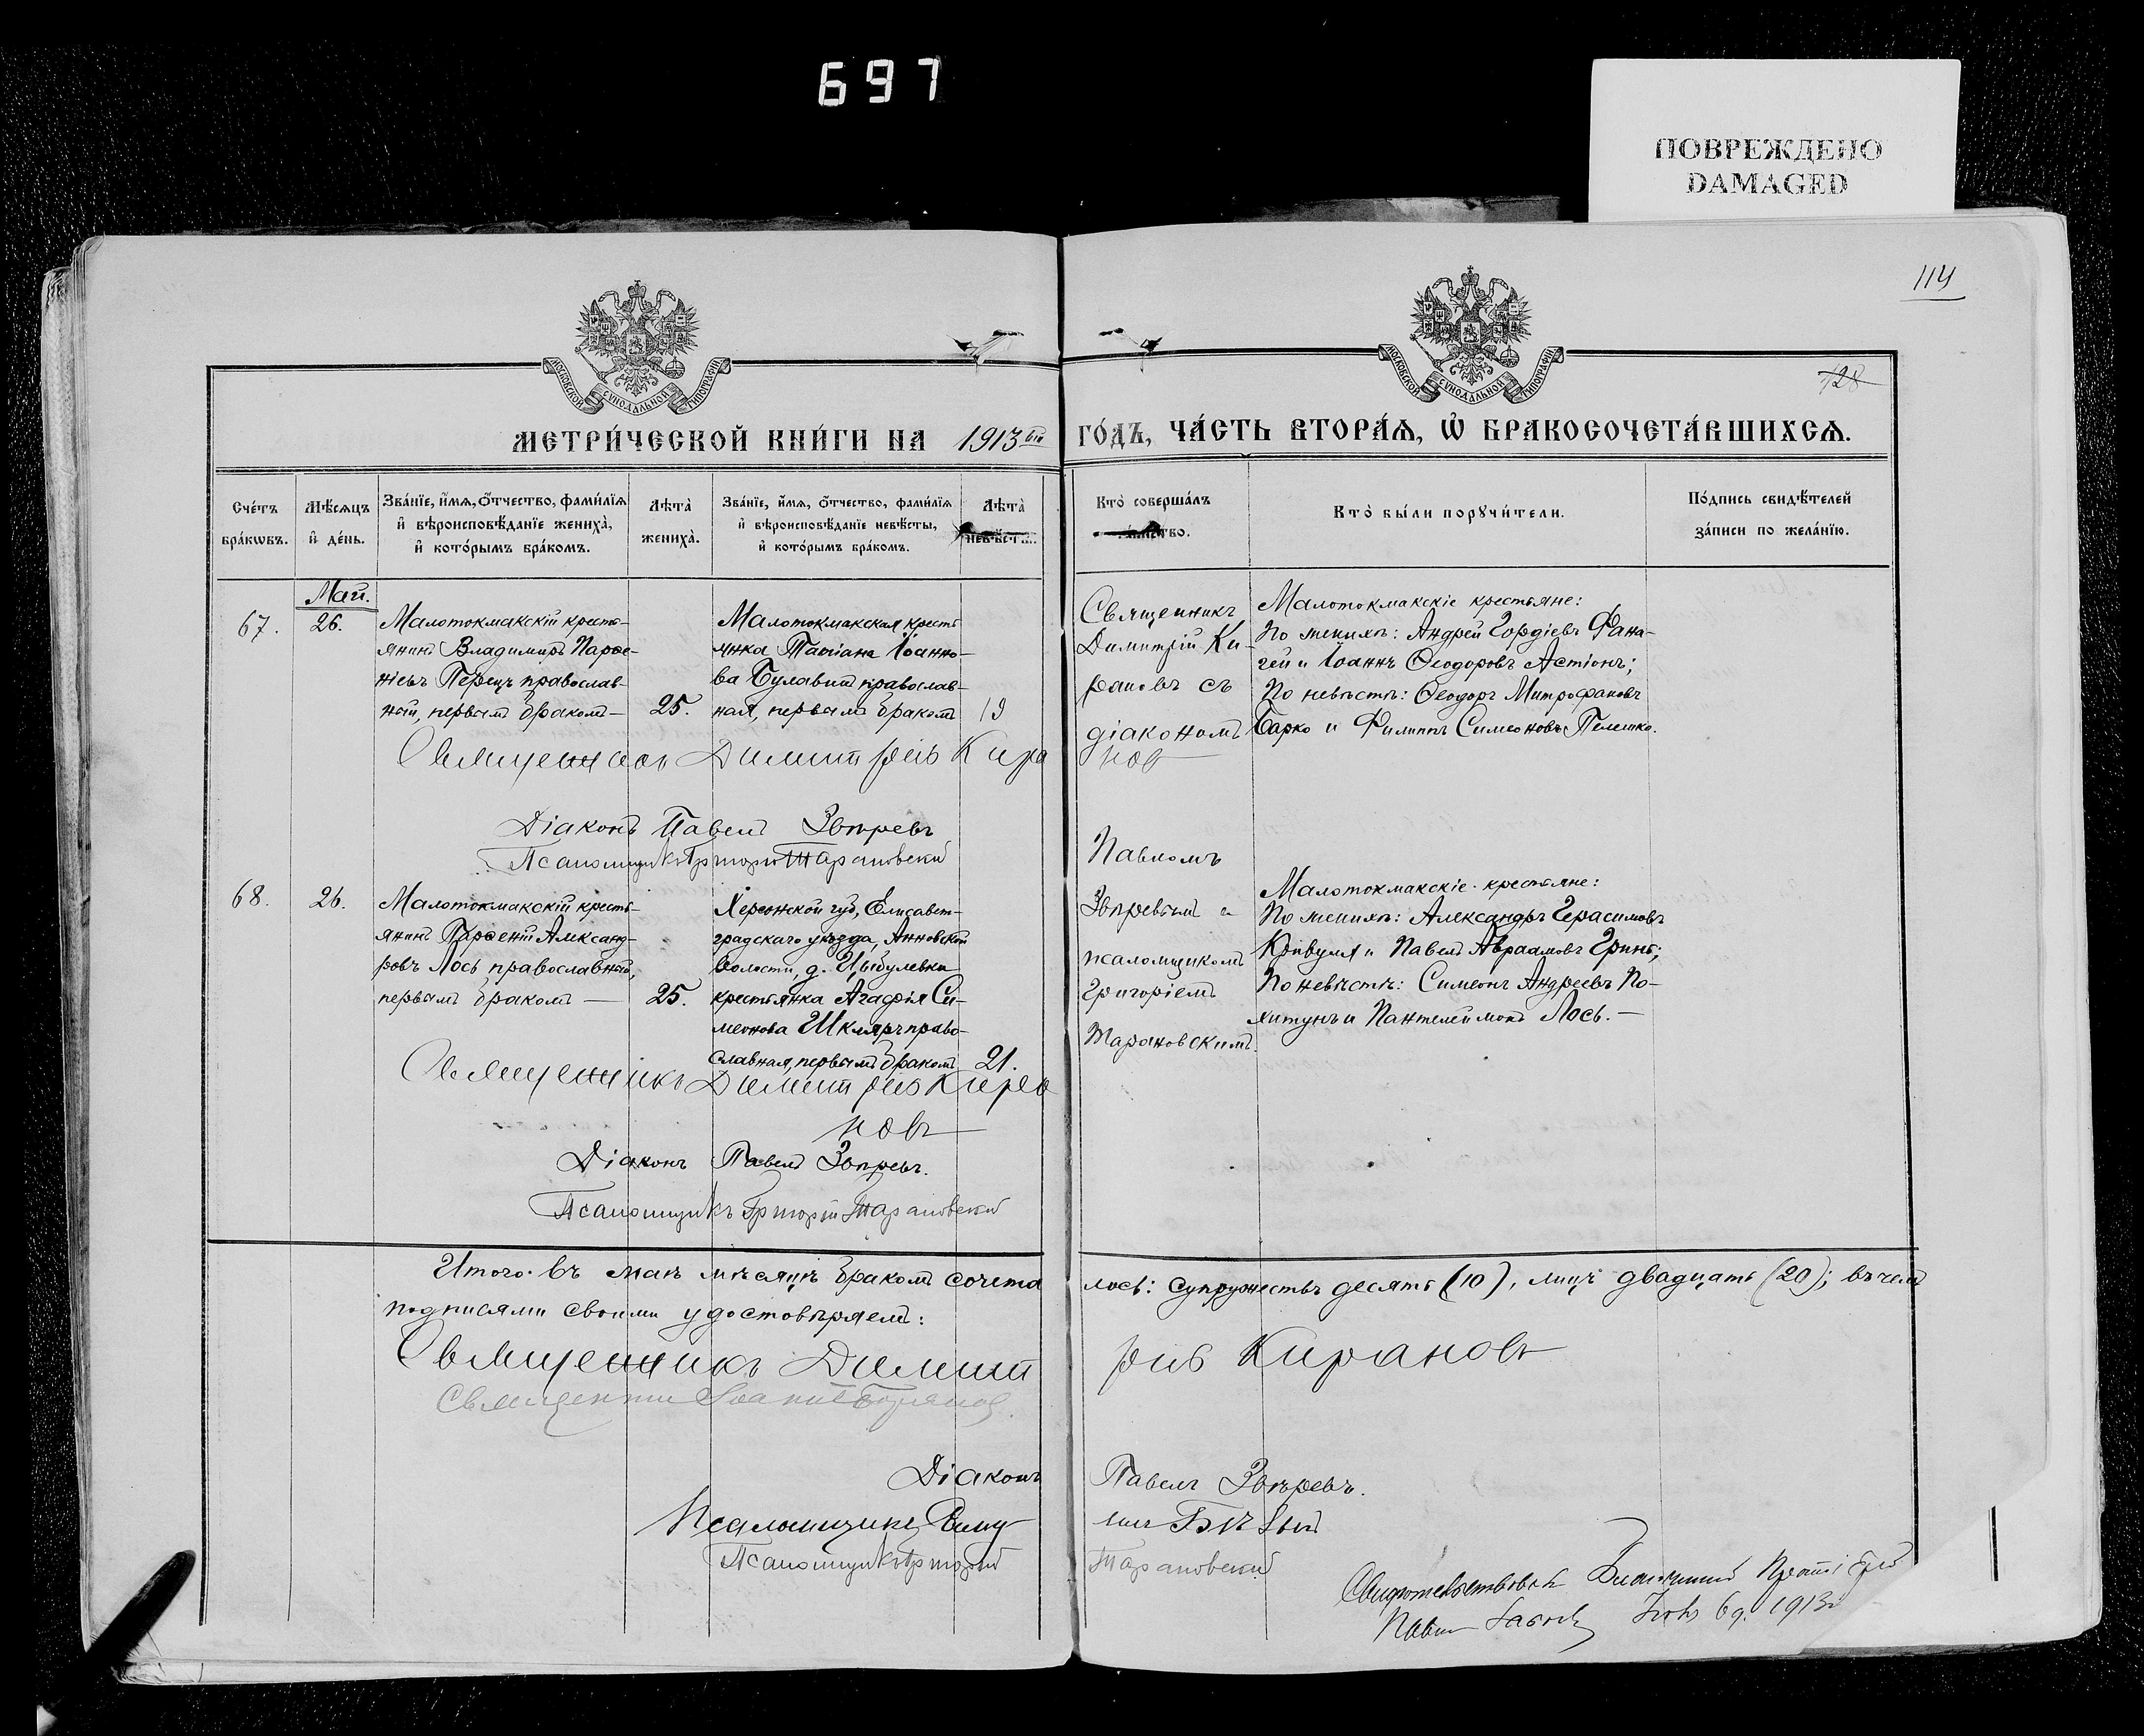 697
ПОВРЕЖДЕНО
DAMAGED
114
128
МОСКОВСКОЙ СѴНОДАЛЬНОЙ ТИПОГРАФІИ
МОСКОВСКОЙ СѴНОДАЛЬНОЙ ТИПОГРАФІИ
МЕТРИ́ЧЕСКОЙ КНИ́ГИ НА 1913ый ГО́ДЪ, ЧА́СТЬ ВТОРА́Ѧ, Ѡ҆ БРАКОСОЧЕТА́ВШИХСѦ.
Сче́тъ бра́кѡвъ.
Мѣ́сяцъ и҆ де́нь.
Зва́нїе, и҆́мѧ, ѻ҆́тчество, фами́лїѧ
и҆ вѣроисповѣ́данїе жениха̀,
и҆ кото́рымъ бра́комъ.
Лѣта̀ жениха̀.
Зва́нїе, и҆́мѧ, ѻ҆́тчество, фами́лїѧ
и҆ вѣроисповѣ́данїе невѣ́сты,
и҆ кото́рымъ бра́комъ.
Лѣта̀ невѣ́сты.
Кто̀ соверша́лъ
та́инство.
Кто̀ бы́ли порꙋчи́тели.
По́дпись свидѣ́телей
за́писи по жела́нїю.
Май.
67. 26.
Малотокмакскій кресть-
янинъ Владимиръ Парѳе-
ніевъ Перецъ православ-
ный, первымъ бракомъ — 25.
Малотокмакская кресть
янка Татіана Іоанно-
ва Булавинъ православ-
ная, первымъ бракомъ 19
Священникъ
Димитрій Ки-
рановъ съ
діакономъ
Малотокмакскіе крестьяне:
По женихѣ: Андрей Гордіевъ Фана-
гей и Іоаннъ Ѳеодоровъ Астіонъ;
По невѣстѣ: Ѳеодоръ Митрофановъ
Барко и Филиппъ Симеоновъ Пелешко.
Священникъ Димитрій Кира
нов
Діаконъ Павелъ Звѣревъ
Псаломщикъ Григорій Тарановскій
68. 26.
Малотокмакскій кресть-
янинъ Парѳеній Александ-
ровъ Лось православный,
первымъ бракомъ — 25.
Херсонской губ, Елисавет-
градскаго уѣзда, Анновской
волости, д. Цыбулевки
крестьянка Агафія Си-
меонова Шкляръ право-
славная, первымъ бракомъ 21.
Павломъ
Звѣревымъ и
псаломщикомъ
Григоріемъ
Тарановскимъ.
Малотокмакскіе крестьяне:
По женихѣ: Александръ Герасимовъ
Кривуля и Павелъ Авраамовъ Гринь;
По невѣстѣ: Симеонъ Андреевъ По-
хитунъ и Пантелеймонъ Лось. —
Священникъ Димитрій Кира
новъ
Діаконъ Павелъ Звѣревъ.
Псаломщикъ Григорій Тарановскій
Итого въ маѣ мѣсяцѣ бракомъ сочета лось: супружествъ десять (10), лицъ двадцать (20); въ чемъ
подписями своими удостовѣряемъ:
Священникъ Димит рій Кирановъ
Священникъ
Діаконъ Павелъ Звѣревъ.
Псаломщикъ
Псаломщикъ Григорій Тарановскій
Свидѣтельствовалъ Благочинный Протоіерей
Павелъ 6 д. 1913г